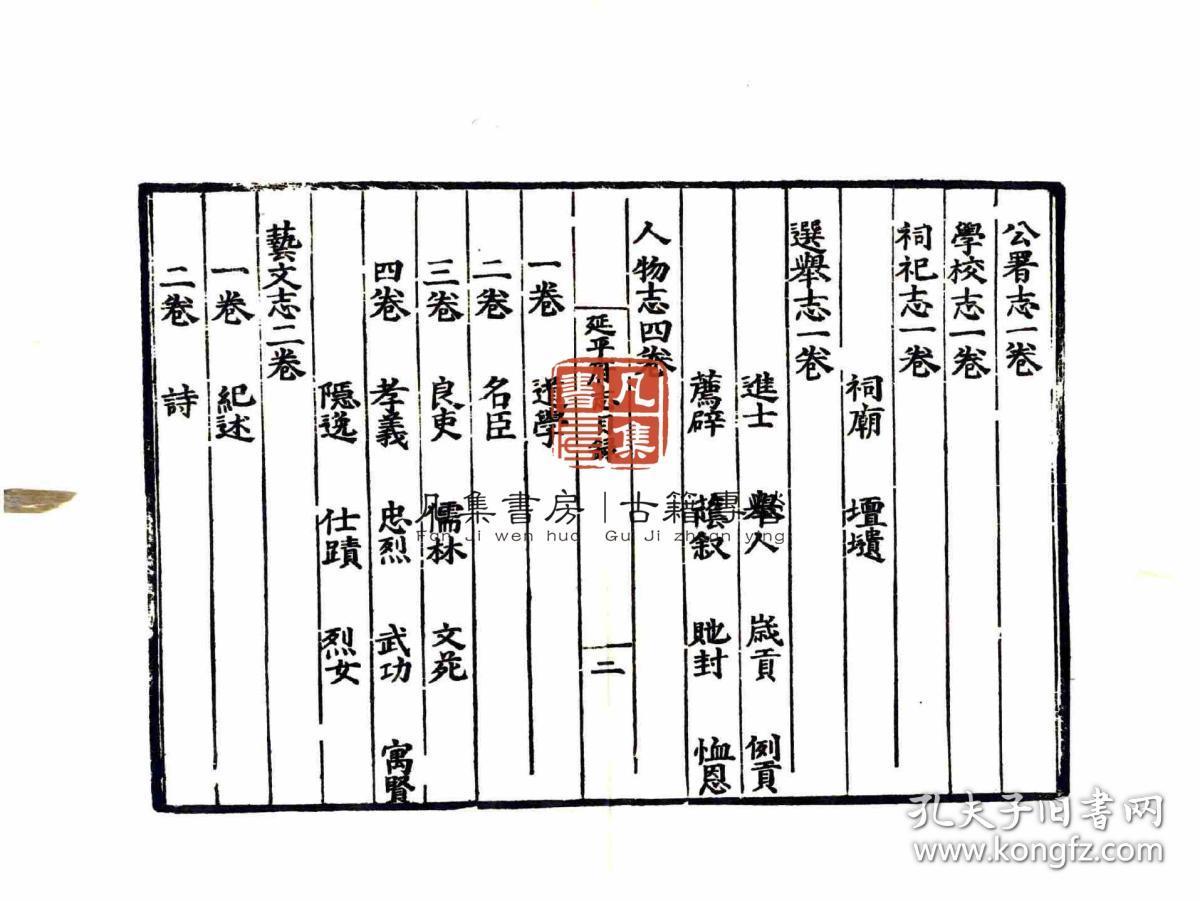 公署志一卷
學校志一卷
祠祀志一卷
祠廟 壇壝
選舉志一卷
進士 舉人 歲貢 例貢
薦辟 蔭叙 貤封 恤恩
人物志四卷
延平府志目錄 二
一卷 道學
二卷 名臣
三卷 良吏 儒林 文苑
四卷 孝義 忠烈 武功 寓賢
隱逸 仕蹟 烈女
藝文志二卷
一卷 紀述
二卷 詩
凡集書房
凡集書房|古籍傳
Fan Ji wen hua Gu Ji zhan ying
孔夫子旧书网
www.kongfz.com